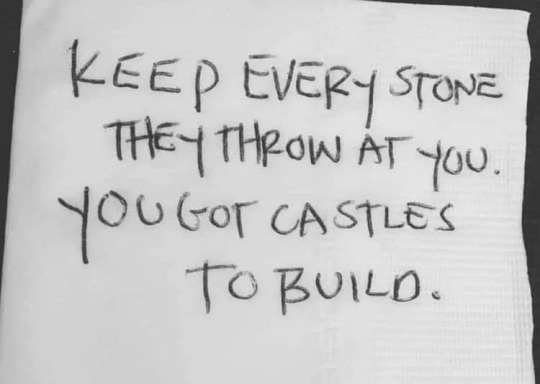 KEEP EVERY STONE
THEY THROW AT YOU.
YOU GOT CASTLES
TO BUILD.